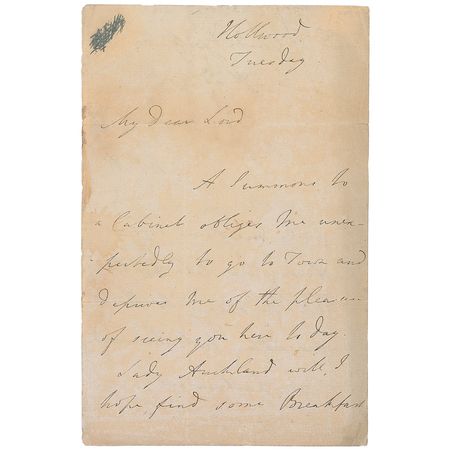 Hollwood.
Tuesday
My Dear Lord
A Summons to
a Cabinet obliges me unex-
pectedly to go to Town and
deprives me of the pleasure
of seeing you here to day.
Lady Auckland will, I
hope, find some Breakfast